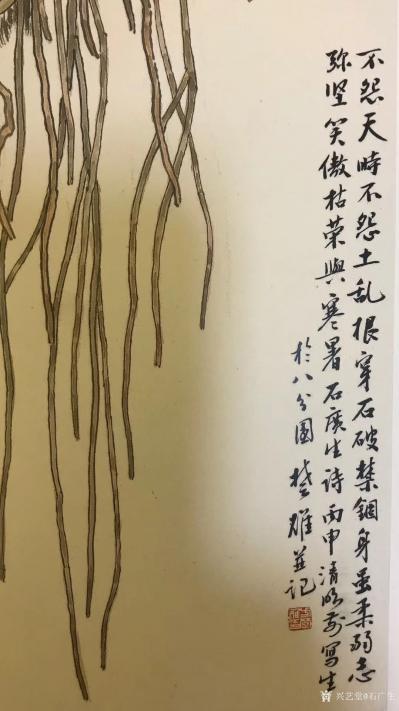 不怨天時不怨土乱根穿石破禁錮身虽柔弱志
弥坚笑傲枯荣與寒暑石廣生诗丙申清明前寫生
於八分園楚雄并记
兴艺堂@石广生